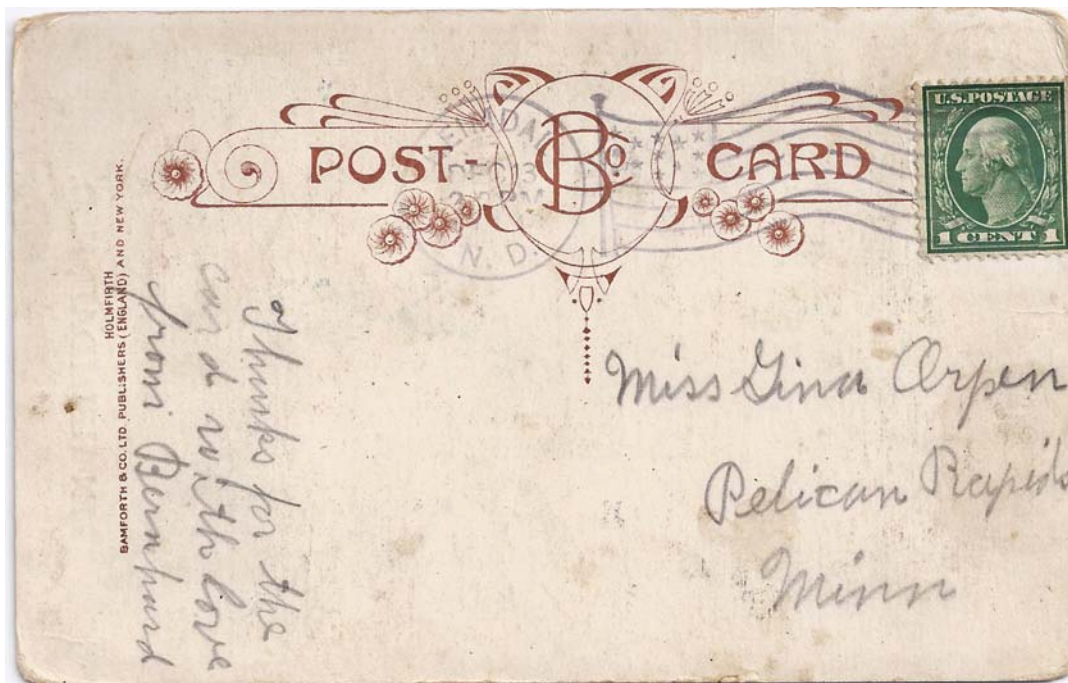 POST-
BCo
CARD
U.S. POSTAGE
1 CENT 1
N. D.
HOLMFIRTH
BAMFORTH & CO. LTD. PUBLISHERS (ENGLAND) AND NEW YORK.
Thanks for the
card with love
from Bernhard
Miss Gina Orpen
Pelican Rapids
Minn